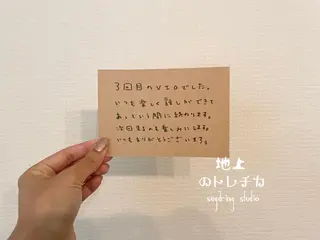 3回目のVIOでした。
いつも楽しく話しができて
あっという間に終わります。
次回まるのも楽しみにします。
いつもありがとうございます。
地上
のトレチカ